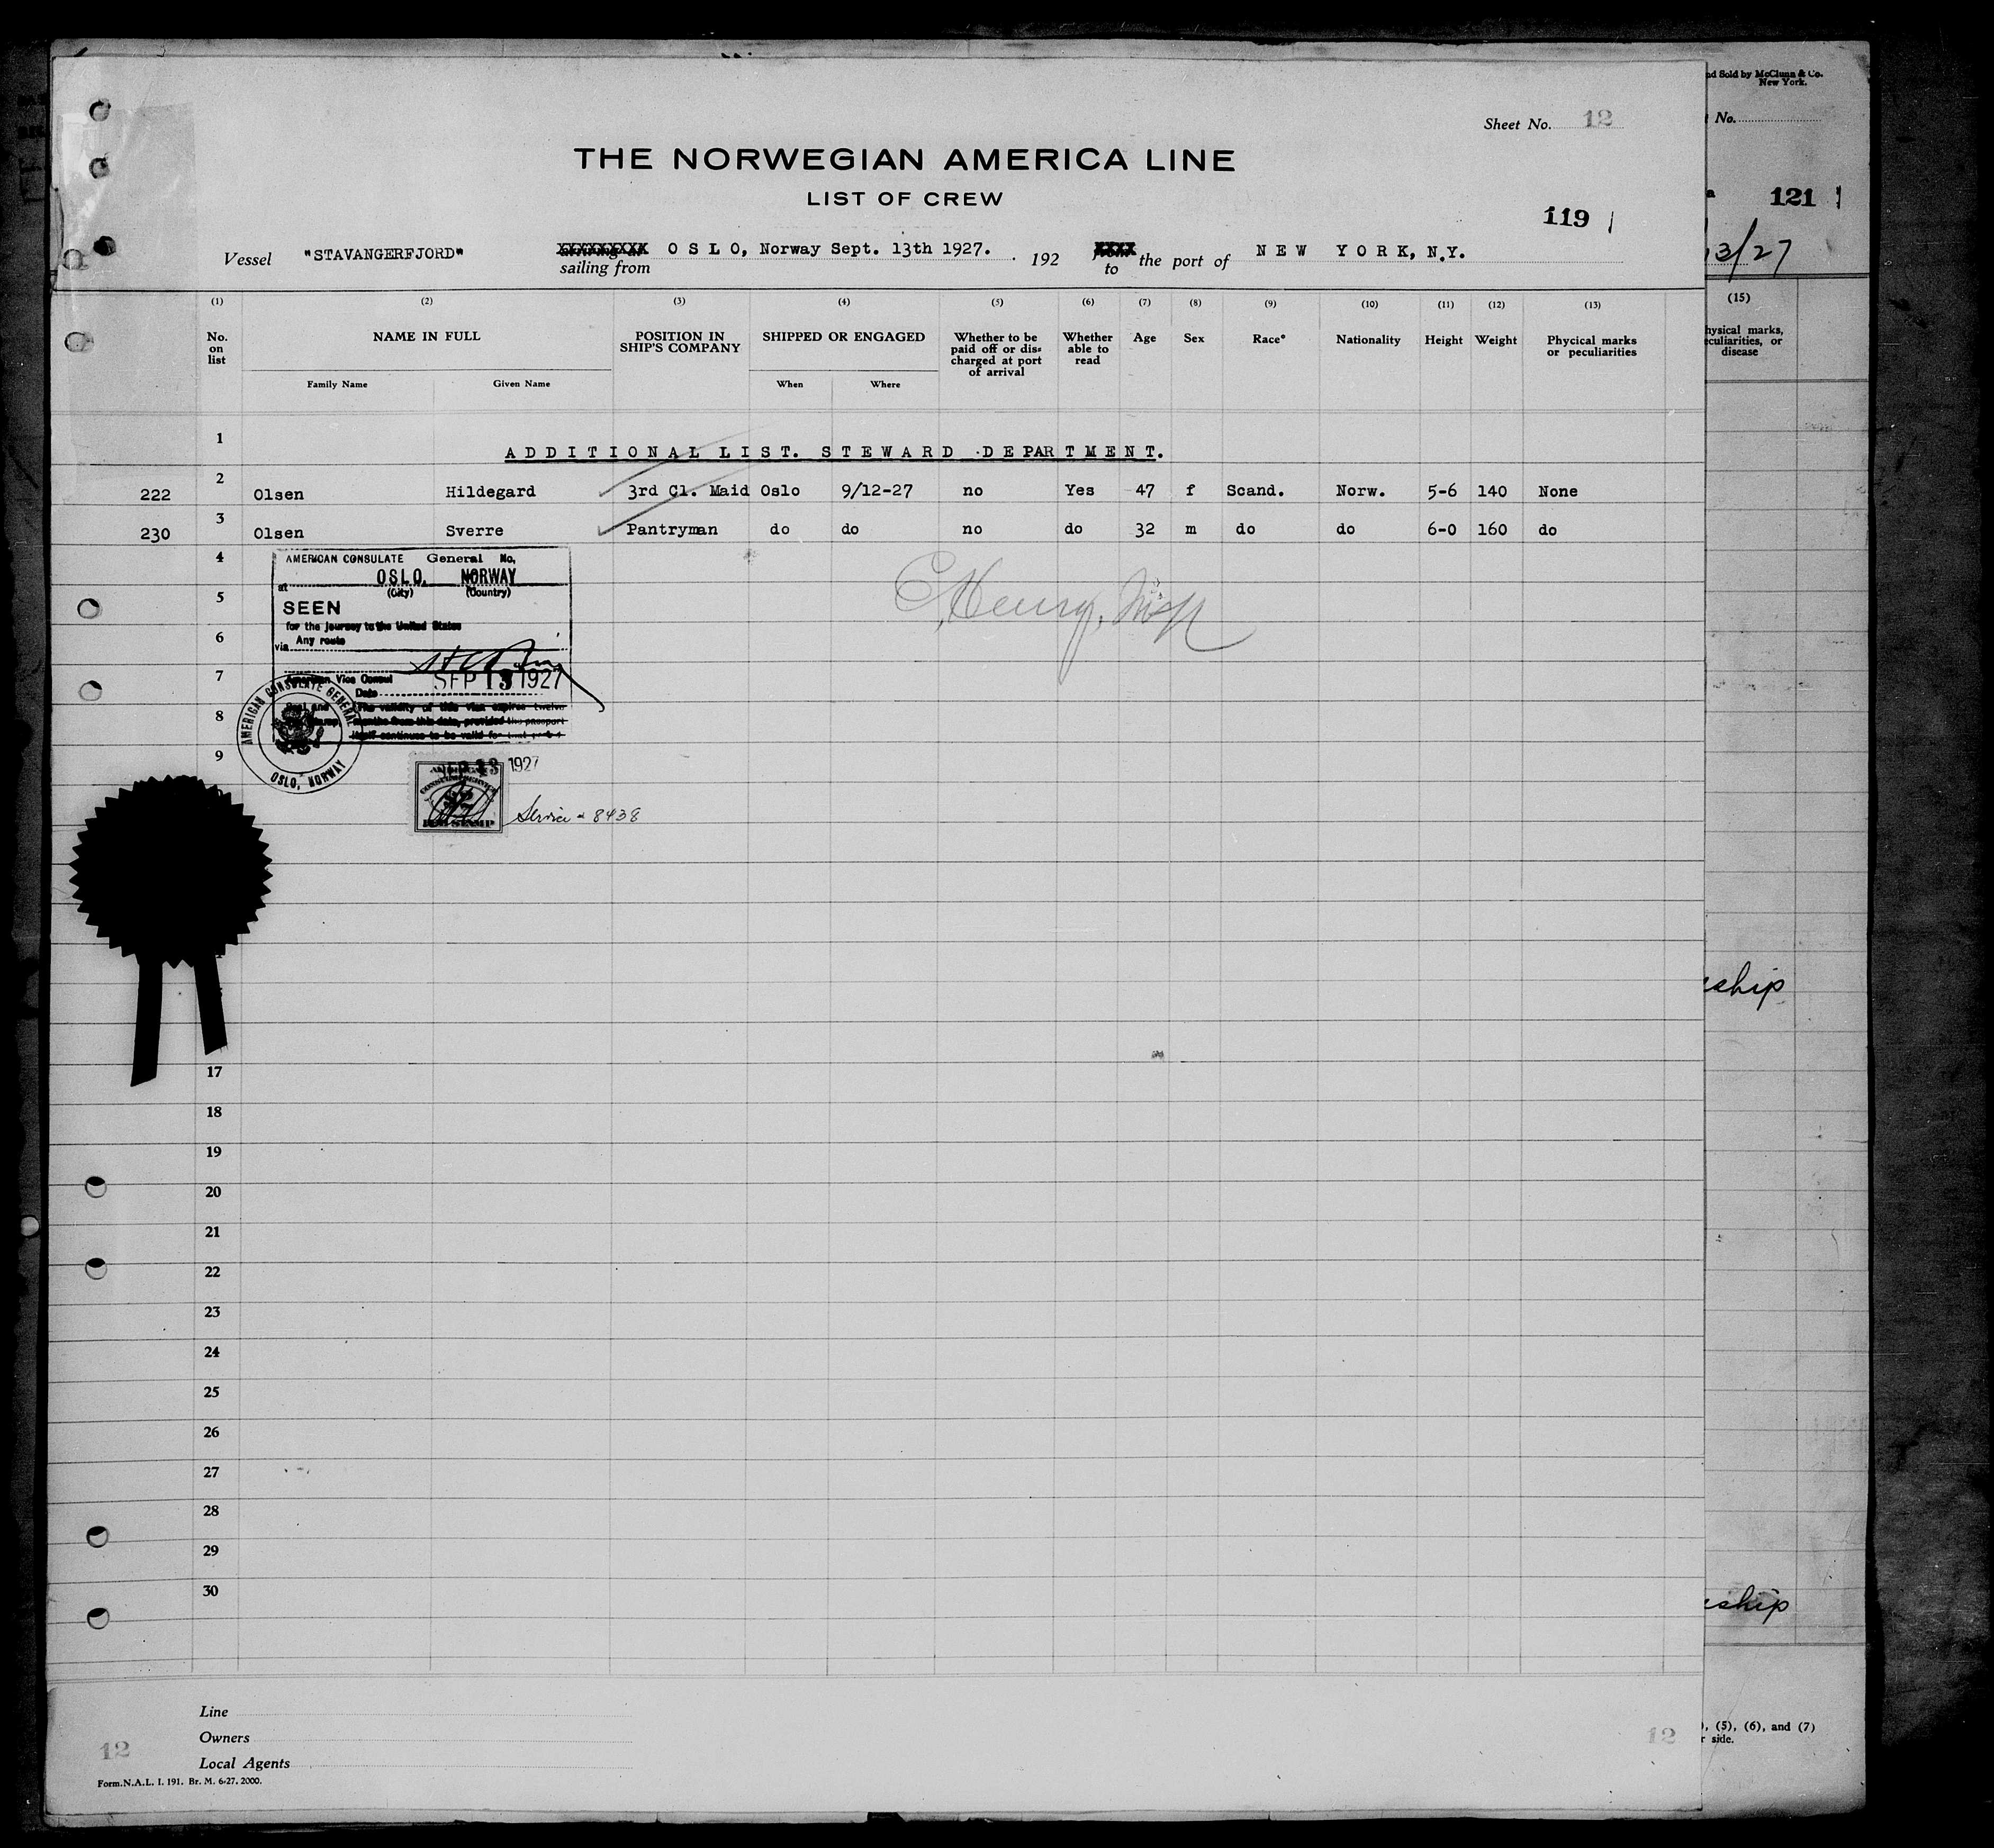 nd Sold by McClunn & Co.
New York.
Sheet No. 12
No.
THE NORWEGIAN AMERICA LINE
LIST OF CREW
119
121
Vessel "STAVANGERFJORD" sailing from O S L O, Norway Sept. 13th 1927. 192 to the port of N E W Y O R K, N.Y.
13/27
(1) (2) (3) (4) (5) (6) (7) (8) (9) (10) (11) (12) (13) (15)
No. on list NAME IN FULL POSITION IN SHIP'S COMPANY SHIPPED OR ENGAGED Whether to be paid off or dis-charged at port of arrival Whether able to read Age Sex Race* Nationality Height Weight Phycical marks or peculiarities
hysical marks,
eculiarities, or
disease
Family Name Given Name When Where
1
A D D I T I O N A L L I S T. S T E W A R D D E P A R T M E N T.
2
222 Olsen Hildegard 3rd Cl. Maid Oslo 9/12-27 no Yes 47 f Scand. Norw. 5-6 140 None
3
230 Olsen Sverre Pantryman do do no do 32 m do do 6-0 160 do
4
AMERICAN CONSULATE General No.
at OSLO, NORWAY
(City) (Country)
5
SEEN
for the journey to the United States
6
via Any route
7
American Vice Consul
Date SEP 13 1927
8
Seal and The validity of this visa expires twelve
months from this date, provided the passport
itself continues to be valid for that period
AMERICAN CONSULATE GENERAL
OSLO, NORWAY
9
C Henry,
SEP 13 1927
CONSULAR SERVICE
FEE STAMP
Service 8438
17
ship
18
19
20
21
22
23
24
25
26
27
28
29
30
ship
Line
Owners
Local Agents
12
12
, (5), (6), and (7)
r side.
Form.N.A.L. I. 191. Br. M. 6-27. 2000.